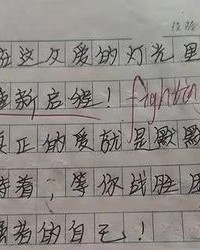 在这父爱的灯光里
重新启程！fightin
真正的爱就是默默
待着，等你战胜困
着的自己！